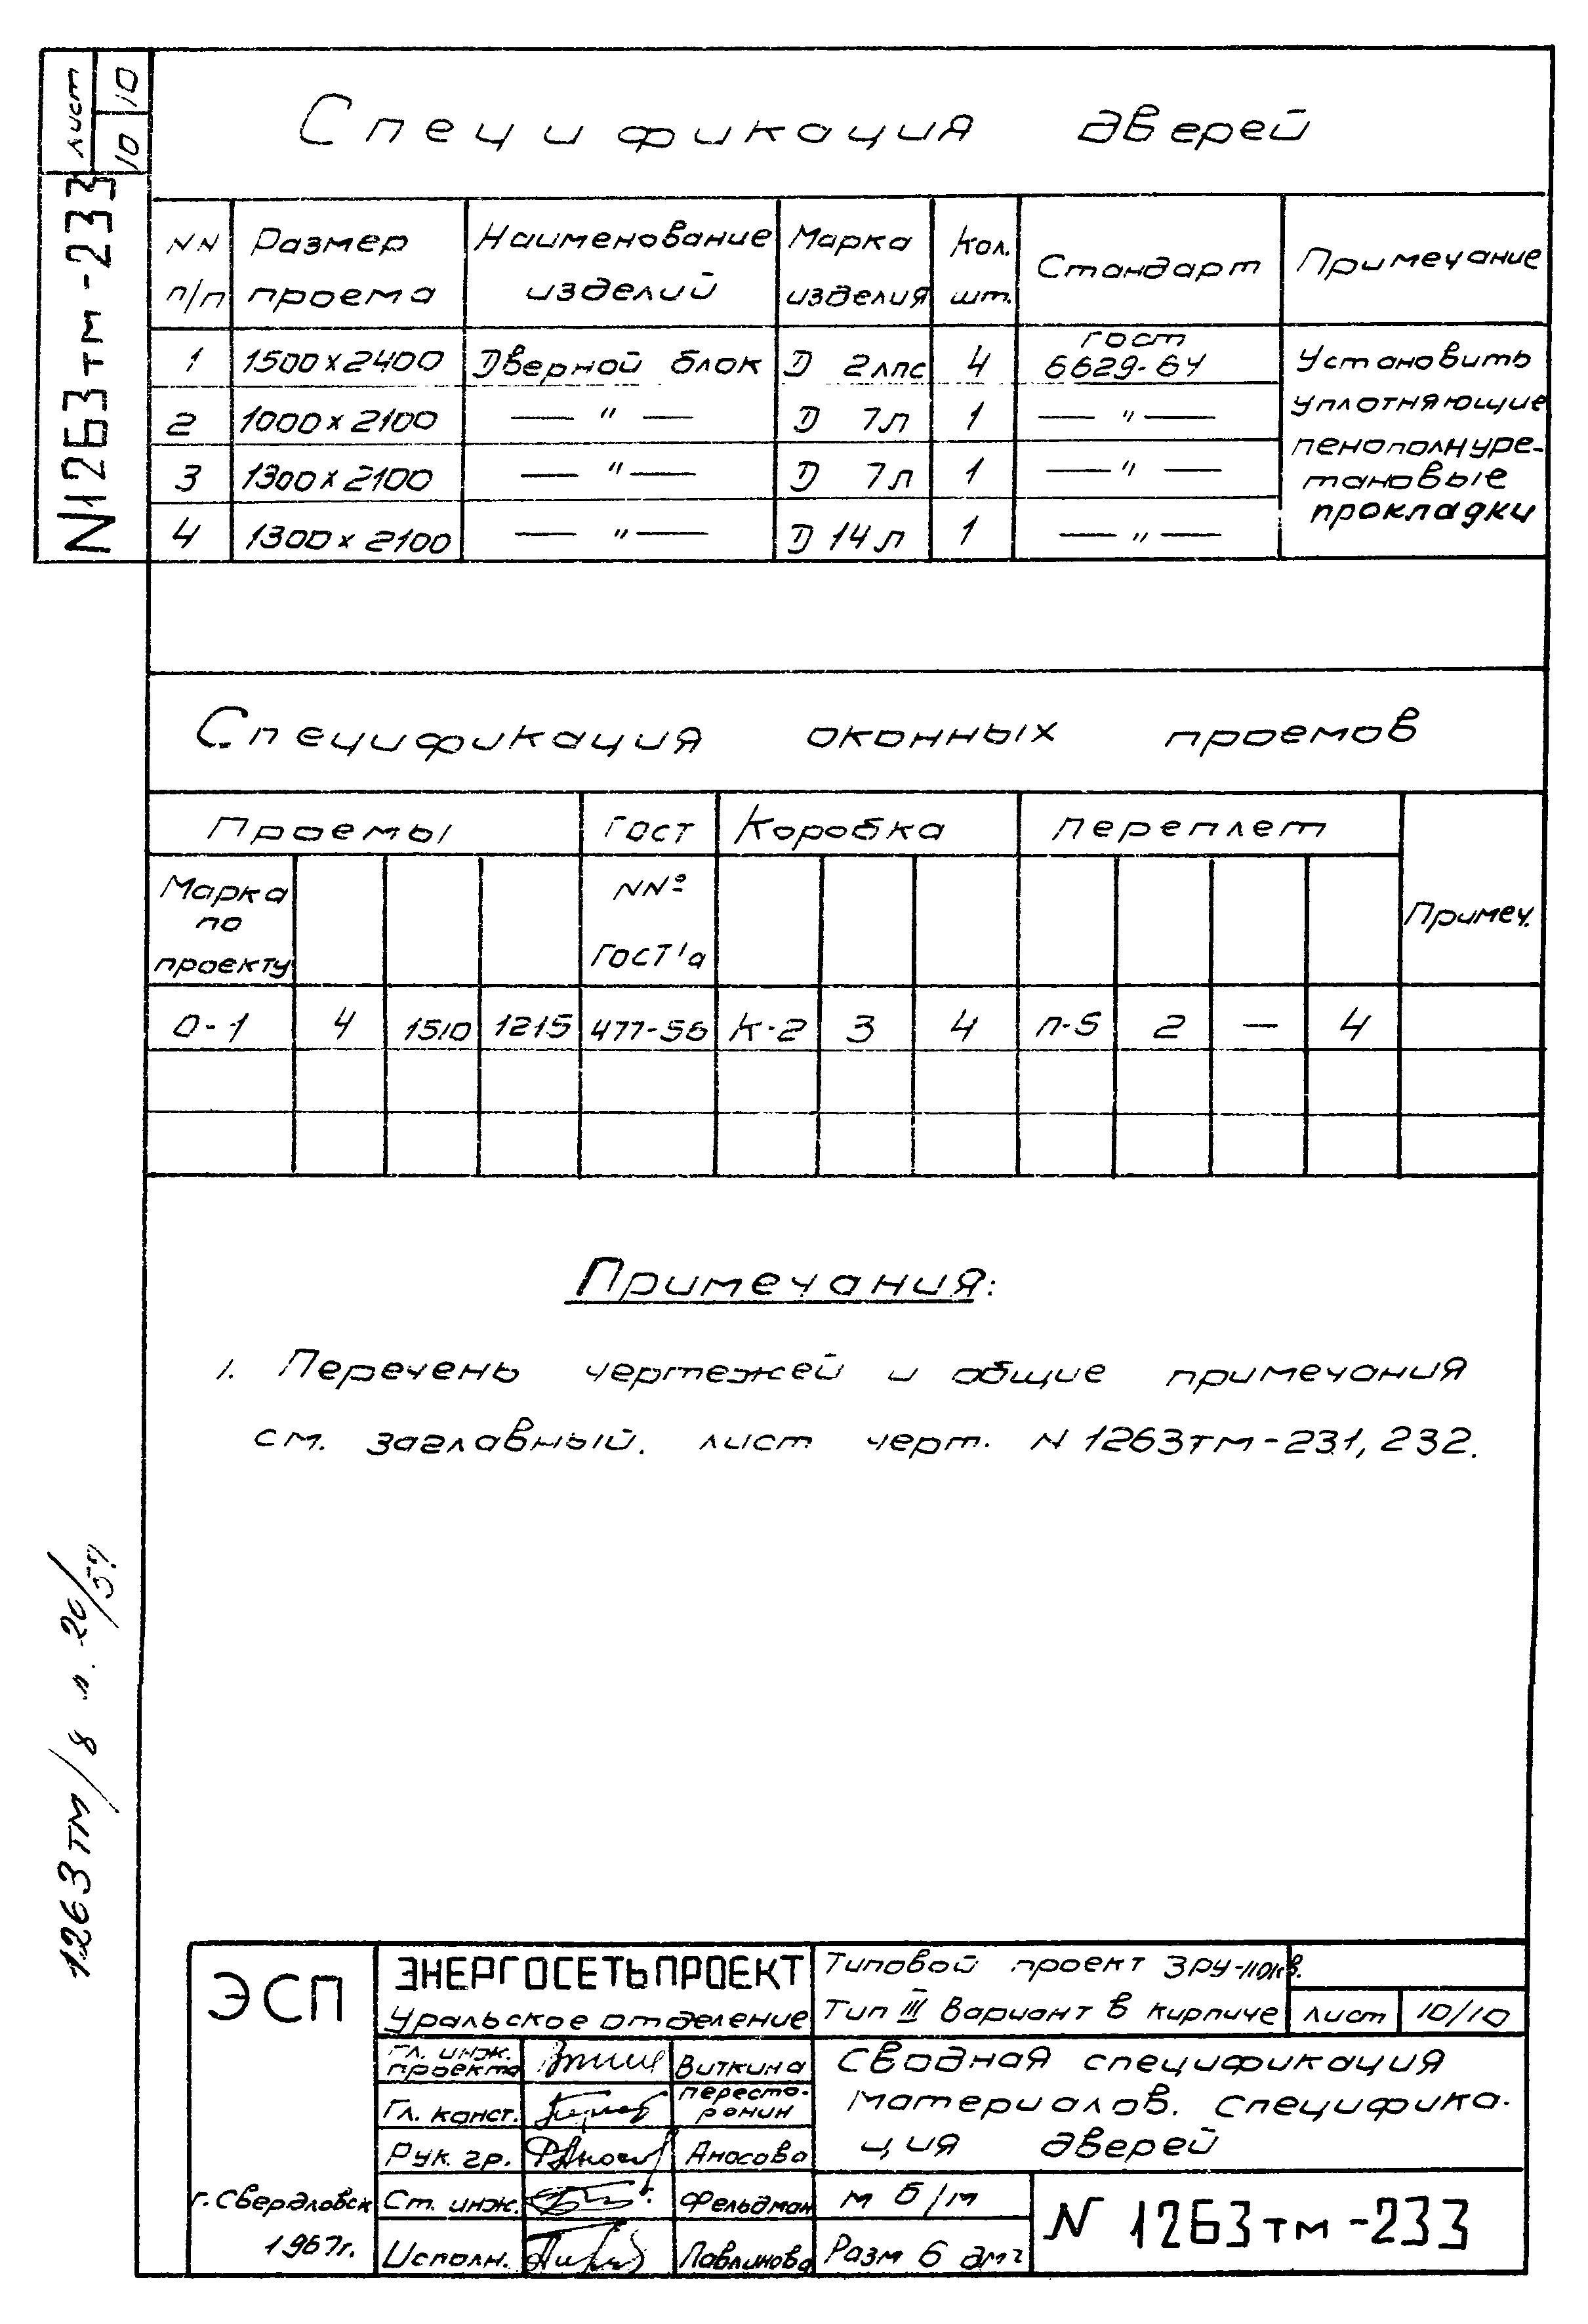 лист 10 10
N1263тм-233
Спецификация дверей
NN п/п | Размер проема | Наименование изделий | Марка изделия | Кол. шт. | Стандарт | Примечание
1 | 1500х2400 | Дверной блок | Д 2лпс | 4 | гост 6629-64 | Установить
2 | 1000х2100 | — " — | Д 7л | 1 | — " — | уплотняющие
3 | 1300х2100 | — " — | Д 7л | 1 | — " — | пенополиуре-
тановые
4 | 1300х2100 | — " — | Д 14л | 1 | — " — | прокладки
Спецификация оконных проемов
Проемы | ГОСТ | Коробка | Переплет | Примеч.
Марка по проекту | NNº ГОСТ'а
О-1 | 4 | 1510 | 1215 | 477-56 | К-2 | 3 | 4 | П-5 | 2 | — | 4
Примечания:
1. Перечень чертежей и общие примечания
см. заглавный. лист черт. N 1263тм-231, 232.
1263тм/8 л. 20/57
ЭСП
г. Свердловск
1967г.
ЭНЕРГОСЕТЬПРОЕКТ
Уральское отделение
Гл. инж. проекта Виткина
Гл. конст. Пересто-
ронин
Рук. гр. Аносова
Ст. инж. Фельдман
Исполн. Павлинова
Типовой проект ЗРУ-110кв.
Тип III Вариант в кирпиче
лист 10/10
Сводная спецификация
материалов. Специфика-
ция дверей
М б/м
Разм 6 дм²
N 1263тм-233